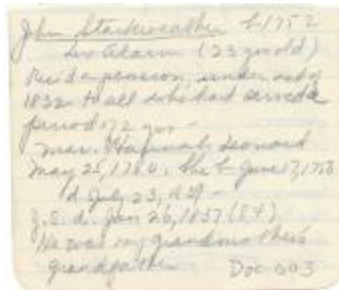 John Starkweather b. 1752
Lex. Alarm (23 yrs old)
Rec'd a pension, under act of
1832 to all who had served a
period of 2 yrs -
mar. Hannah Leonard
May 25, 1780. She b. June 17, 1756
d. July 23, 1839 -
J. S. d. Jan 26, 1837 (84)
He was my grandmother's
grandfather
Doc 003